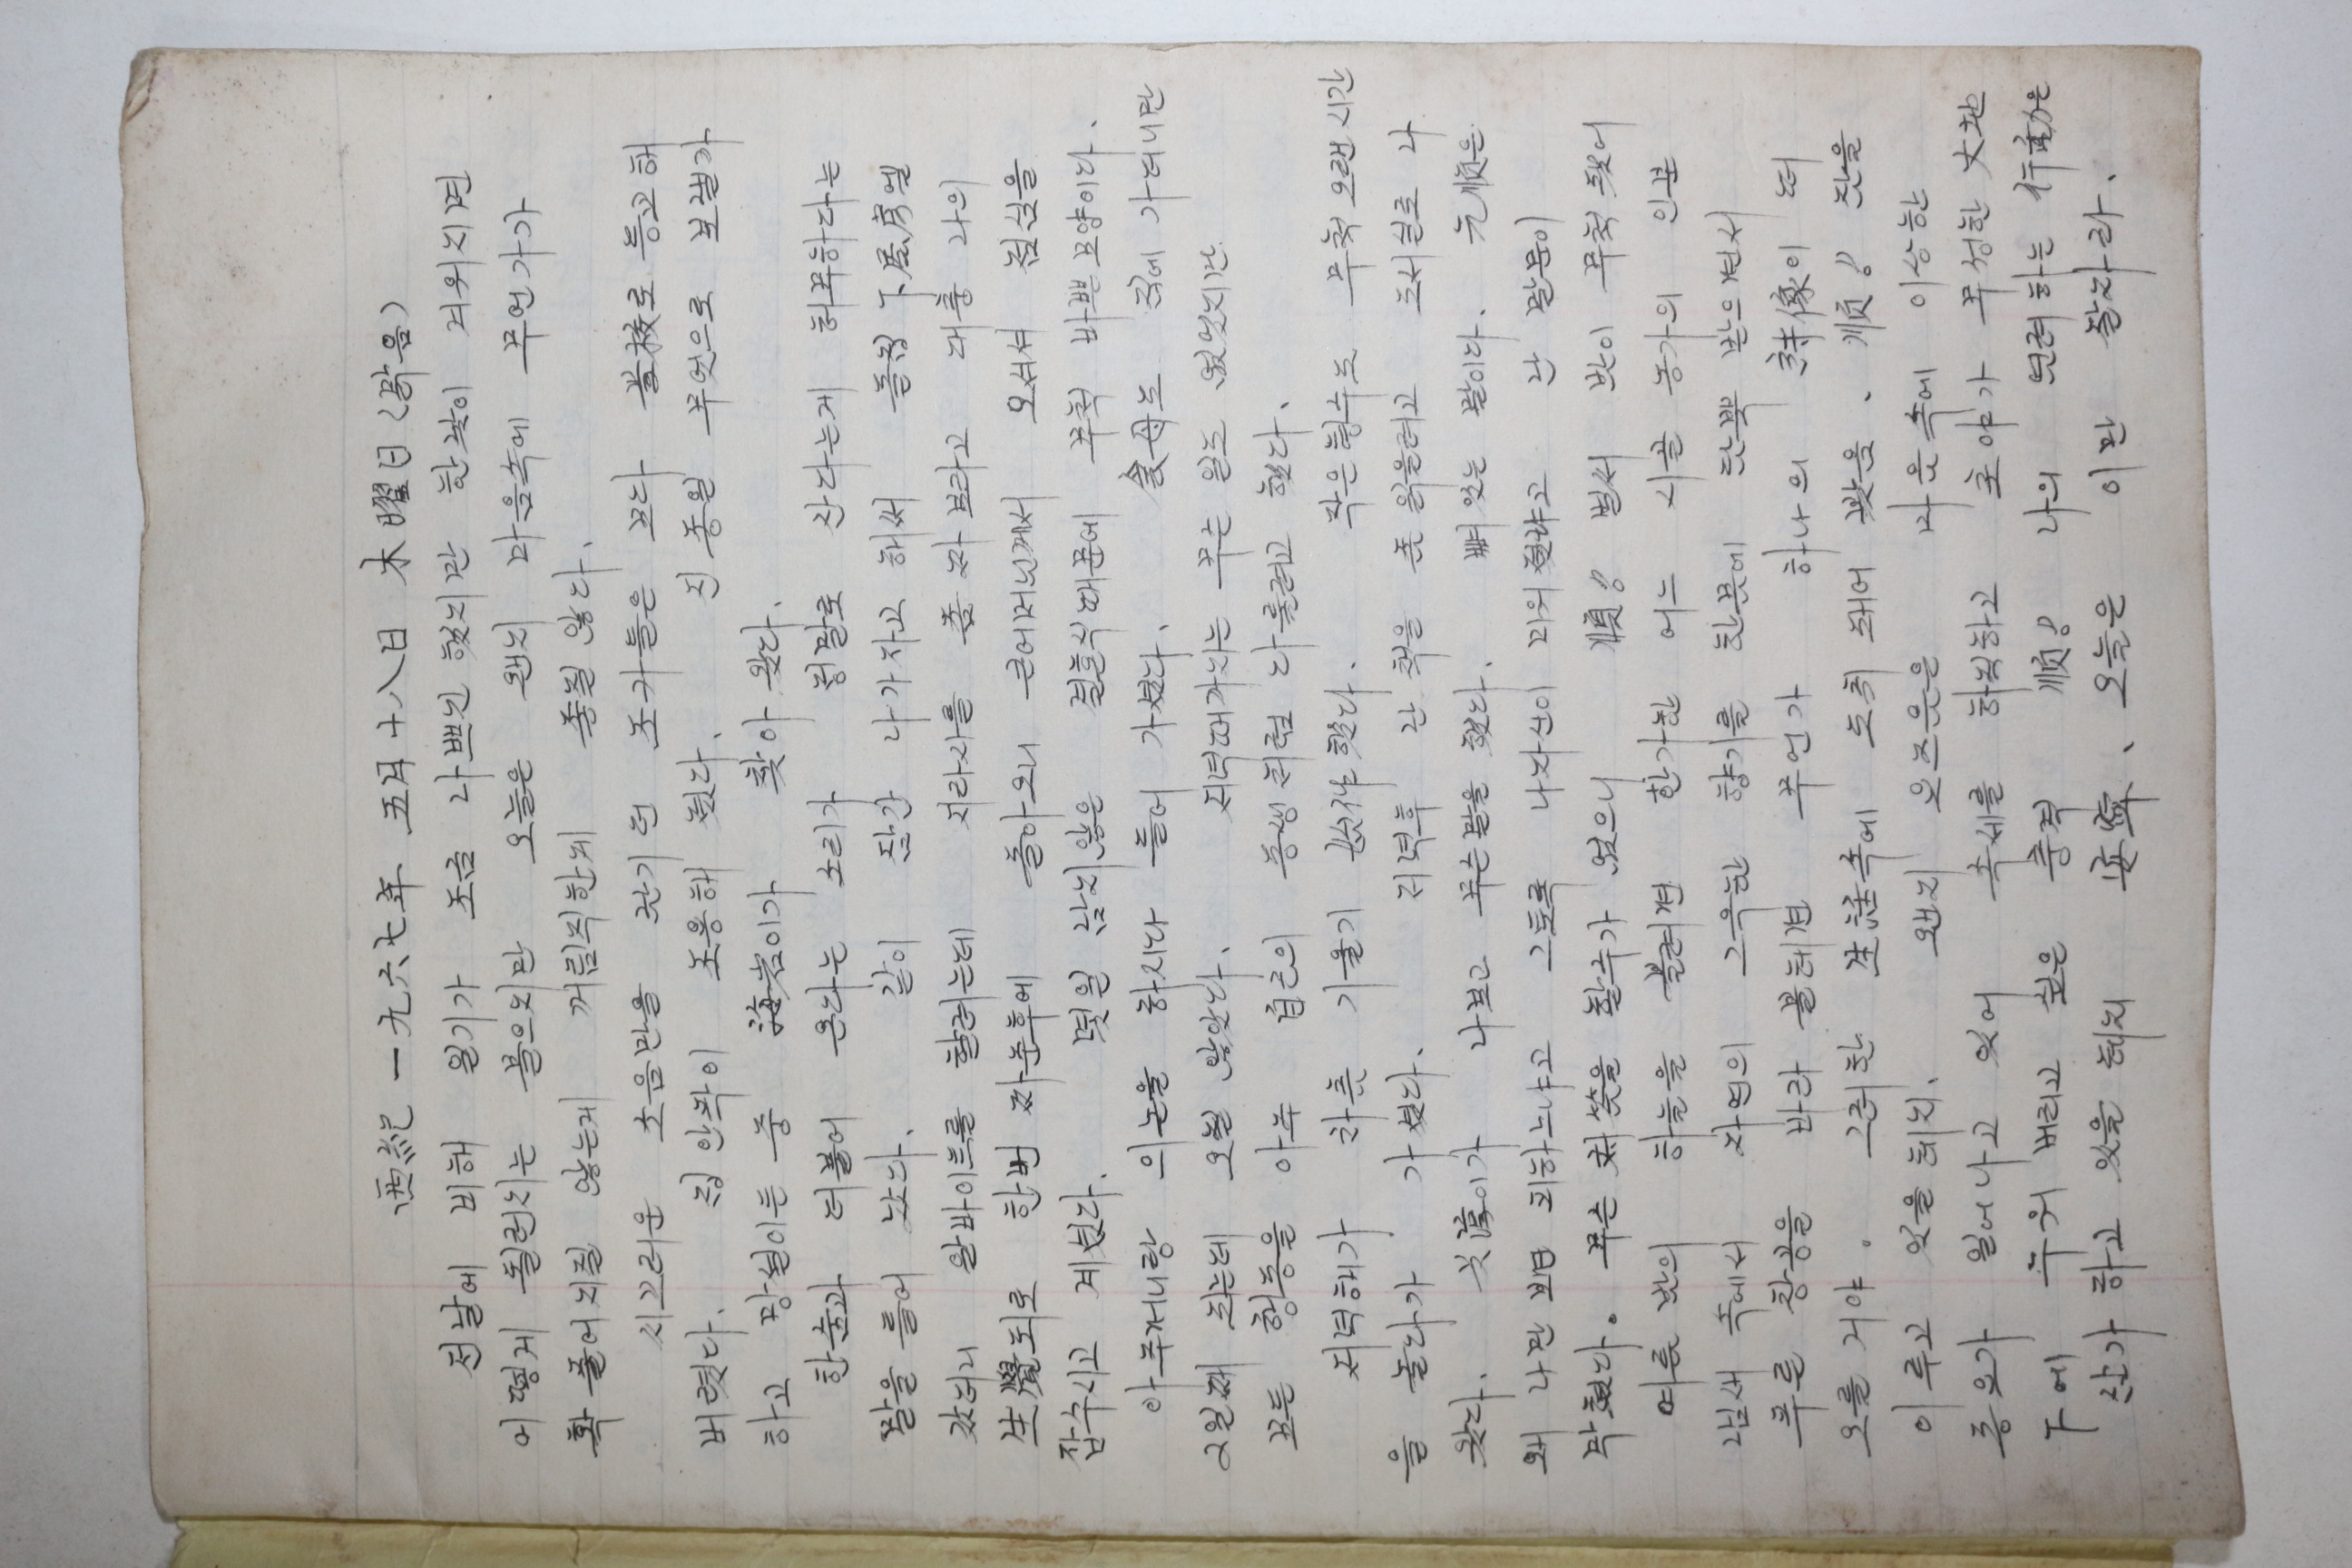 西紀 一九六七年 五月十八日 木曜日(맑음)
전날에 비해 일기가 조금 나쁘긴 했지만 한낮이 겨워지면
어떻게 될런지는 몰으지만 오늘은 왠지 마음속에 무언가가
확 풀어지질 않는게 꺼림직한게 좋질 않다.
시끄러운 소음만을 남기던 조카들은 모다 學校로 등교해
버렸다. 집안팍이 조용해 졌다. 진종일 무엇으로 보낼가
하고 망설이든 중 海岩이가 찾아 왔다.
한숨과 더불어 온다는 소리가 정말로 산다는게 허무하다는
말을 늘어 났다. 같이 잠간 나가자고 해서 돌집 下屋房엘
갔더니 알바이트를 할려는데 지라시를 좀 짜 보라고 대충 나의
生覺되로 한번 짜준후에 돌아오니 큰어머님께서 오셔서 점심을
잡수시고 계셨다. 몇일 남지않은 결혼식때문에 무척 바쁜모양이다.
아주머니랑 의논을 하시다 들어 가셨다. 食母도 집에 가더니만
2일째 되는데 오질 않았다. 저녁때까지는 무슨 일도 없었지만
모든 행동을 아주 自己의 동생처럼 다룰려고 했다.
저녁해가 차츰 기울기 始作했다. 작은형수도 무척 오랜시간
을 놀다가 가셨다. 저녁후 난 책을 좀 읽을려고 도서실로 나
왔다. 이가 나보고 무슨말을 했다. 뼈있는 말이다. 元順은
왜 나만 보면 피하느냐고 그토록 나자신이 미워졌냐고 난 말문이
막혔다. 무슨 対答을 할수가 없으니 順! 벌써 밤이 무척 됐어
여름 밤의 하늘을 볼려면 한가한 어느 시골 농가의 인분
냄새 속에서 자연의 그윽한 향기를 한몸에 담뿍 받으면서
푸른 창공을 바라 볼테면 무언가 하나의 詩像이 떠
오를 거야. 그러한 生活속에 도취 돼어 봤음. 順! 잠을
이루고 있을 테지. 왠지 요즈음은 마음속에 이상한
동요가 일어나고 있어 속세를 하직하고 초야가 무성한 大地
下에 누워 버리고 싶은 충격 順! 나의 염려하는 行動은
삼가 하고 있을 테지 安寧. 오늘은 이만 잘자라.